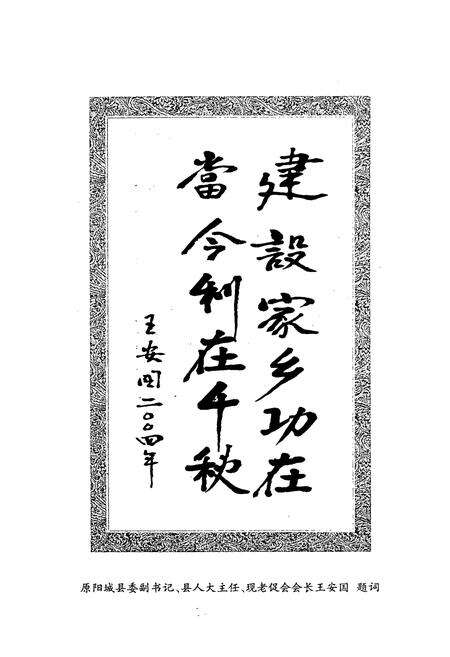 建設家乡功在
當今利在千秋
王安国二〇〇四年
原阳城县委副书记、县人大主任、现老促会会长王安国 题词